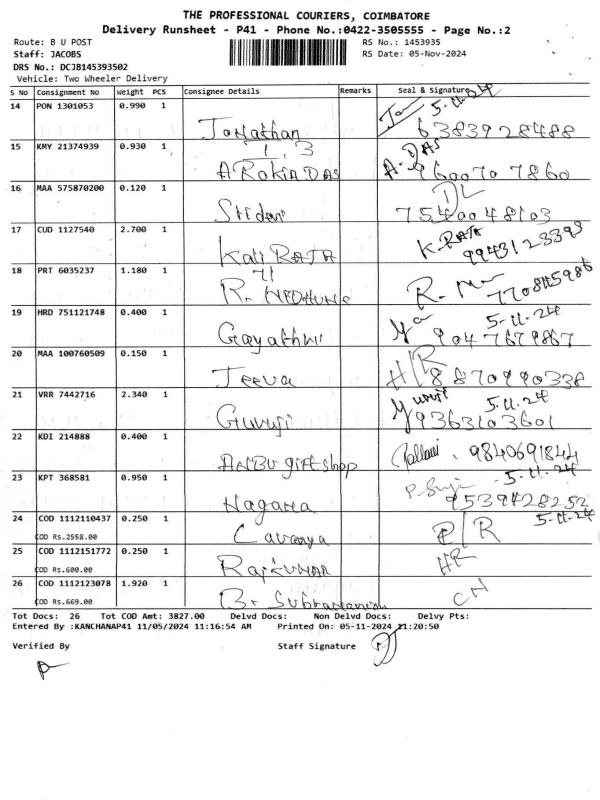 THE PROFESSIONAL COURIERS, COIMBATORE
Delivery Runsheet - P41 - Phone No.:0422-3505555 - Page No.:2
Route: B U POST RS No.: 1453935
Staff: JACOBS RS Date: 05-Nov-2024
DRS No.: DCJB145393502
Vehicle: Two Wheeler Delivery
S No Consignment No Weight PCS Consignee Details Remarks Seal & Signature
14 PON 1301053 0.990 1 5-11-24
Jonathan 6383928488
15 KMY 21374939 0.930 1 1, 3 A. DAS
AROKIADAS 9600707860
16 MAA 575870200 0.120 1 DL
Sridevi 7540048103
17 CUD 1127540 2.700 1 K. RAJA
Kali RAJA 9943123393
18 PRT 6035237 1.180 1
R. 770845986
19 HRD 751121748 0.400 1 5-11-24
Gayathri 9047679867
20 MAA 100760509 0.150 1 H/R
Jeeva 8870990338
21 VRR 7442716 2.340 1 5.11.24
Guruji 9363103601
22 KDI 214888 0.400 1
ANBU gift shop Pallavi . 9840691844
23 KPT 368581 0.950 1 5-11-24
Nagama 9539428252
24 COD 1112110437 0.250 1 5-11-24
COD Rs.2558.00 Lavanya R
25 COD 1112151772 0.250 1 HR
COD Rs.600.00 Rajkumar
26 COD 1112123078 1.920 1 CN
COD Rs.669.00 Br Subramaniam
Tot Docs: 26 Tot COD Amt: 3827.00 Delvd Docs: Non Delvd Docs: Delvy Pts:
Entered By :KANCHANAP41 11/05/2024 11:16:54 AM Printed On: 05-11-2024 11:20:50
Verified By Staff Signature